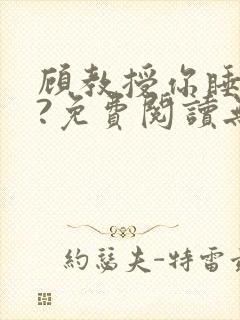 顧教授你睡
?免費閱讀
約瑟夫-特雷